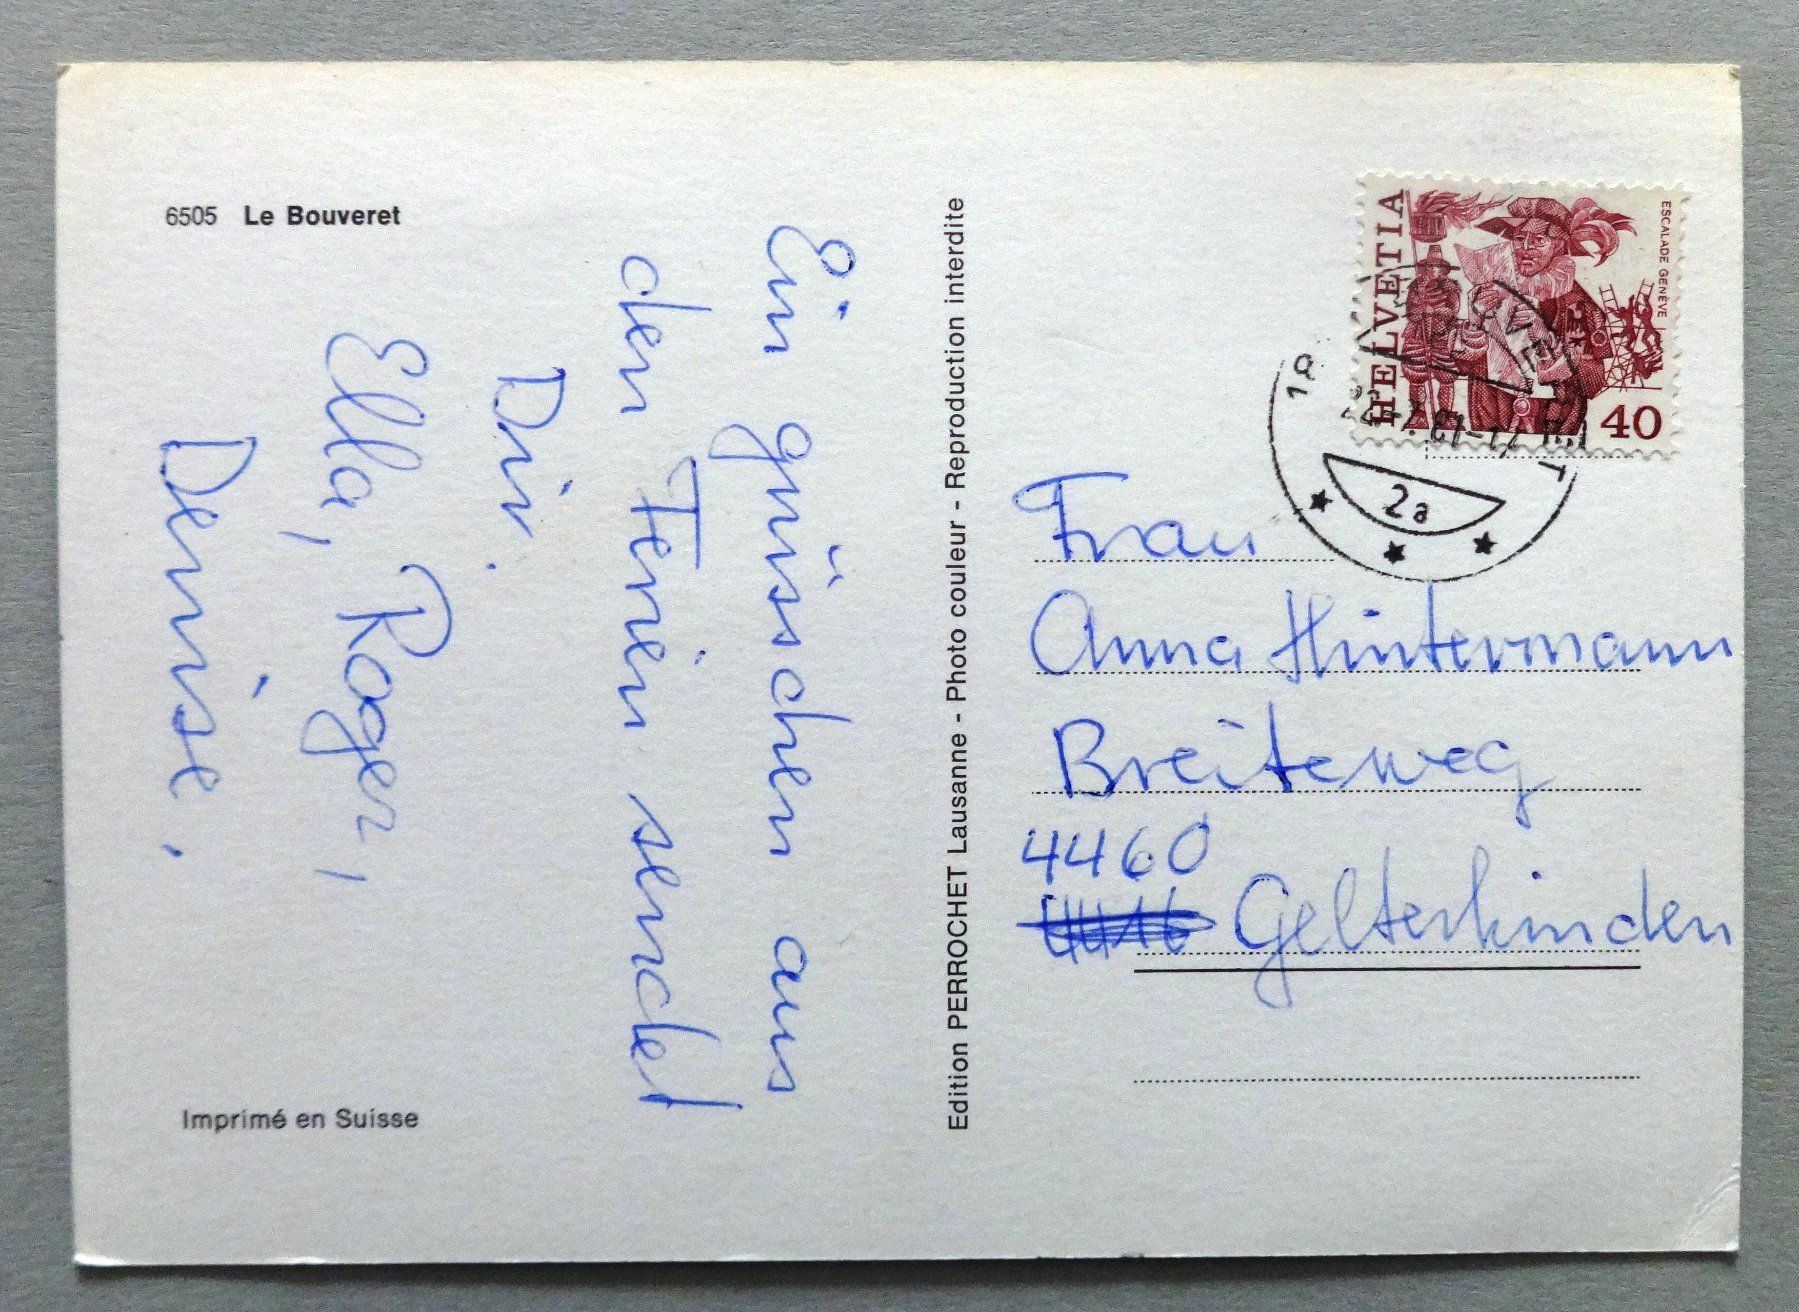 6505 Le Bouveret
Ein grüsschen aus
den Ferien sendet
Dir.
Ella, Roger,
Denise.
Imprimé en Suisse
Edition PERROCHET Lausanne - Photo couleur - Reproduction interdite
HELVETIA
ESCALADE GENÈVE
40
2a
Frau
Anna Hintermann
Breiteweg
4460
Gelterkinden